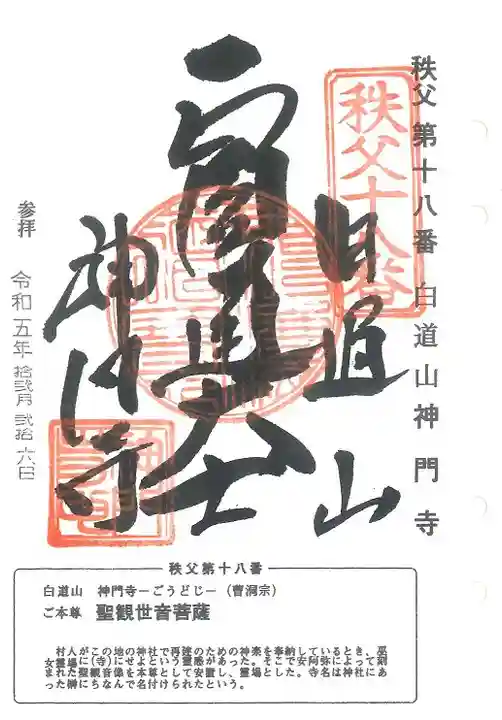 秩父 第十八番 白道山神門寺
秩父十八番
白道山
圓通大士
神門寺
参拝 令和五年 拾弐月 弐拾六日
秩父第十八番
白道山 神門寺−ごうどじ−（曹洞宗）
ご本尊 聖観世音菩薩
村人がこの地の神社で再建のための神楽を奉納しているとき、巫
女霊場に(寺)にせよという霊感があった。そこで安阿弥によって刻
まれた聖観音像を本尊として安置し、霊場とした。寺名は神社にあ
った榊にちなんで名付けられたという。